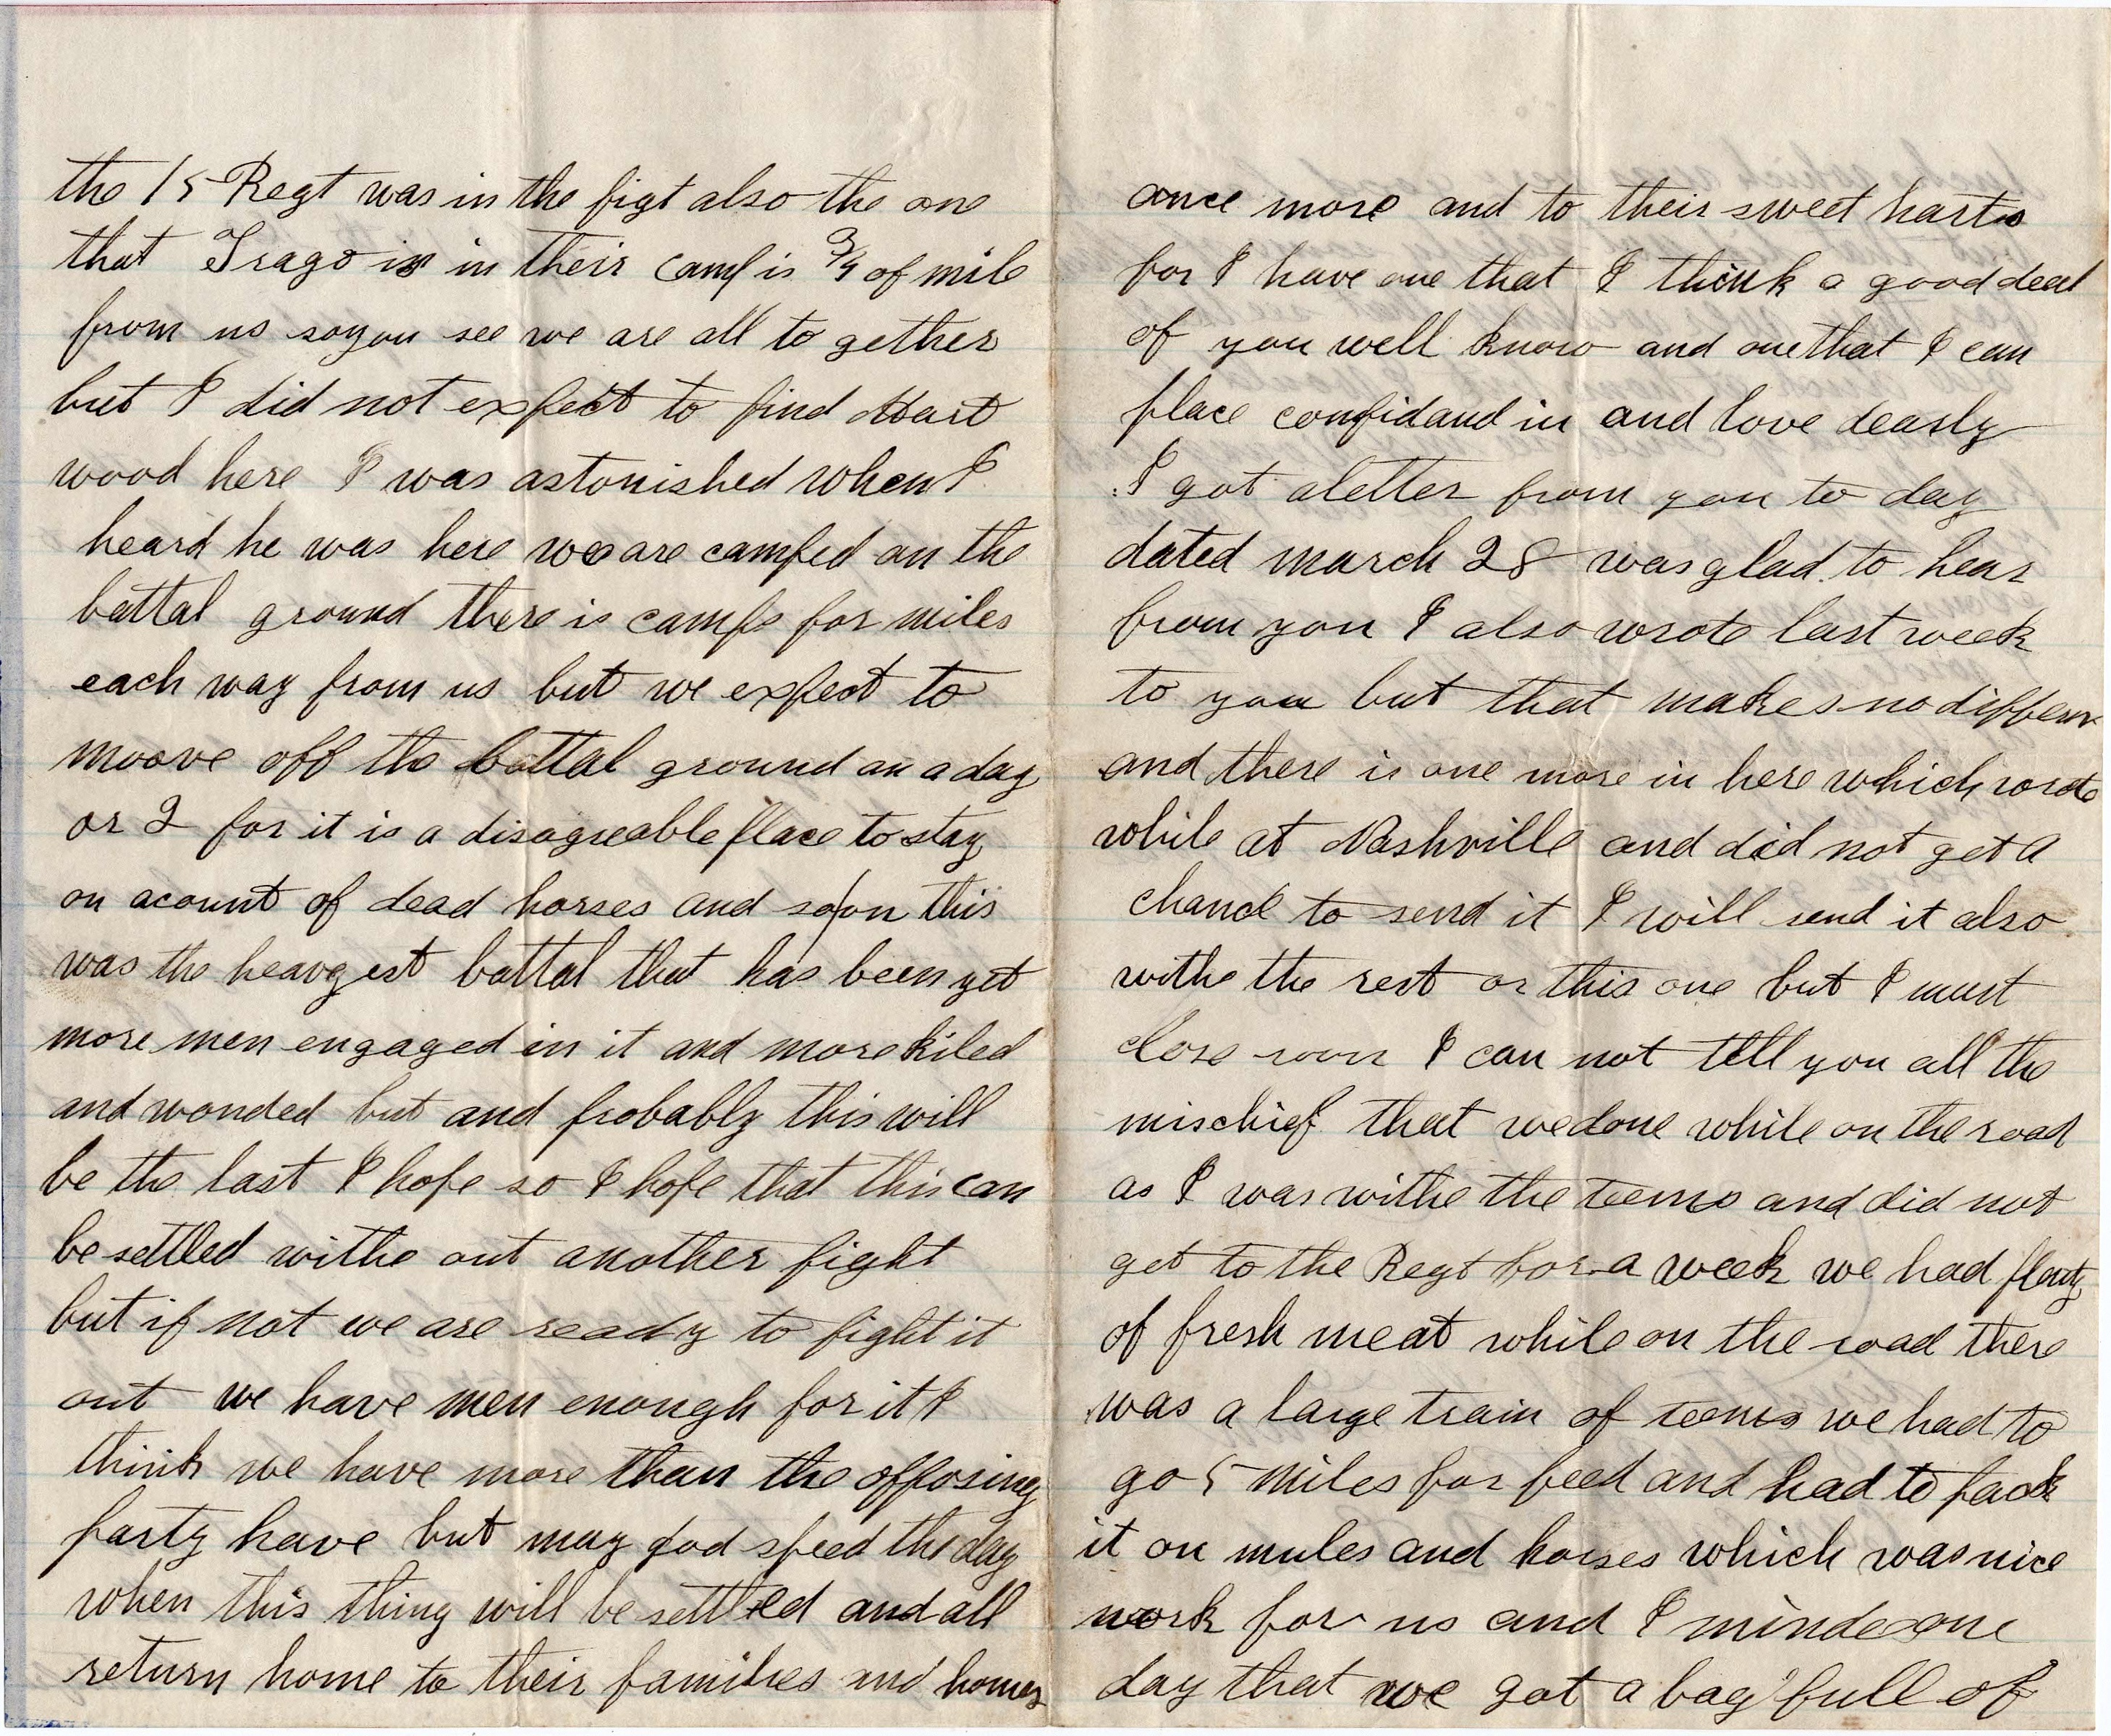 the 15 Regt was in the figt also the one
that Trago is in their camp is 3/4 of mile
from us soyou see we are all to gether
but I did not expect to find Hart
wood here I was astonished when I
heard he was here we are camped on the
battal ground there is camps for miles
each way from us but we expect to
moove off the battal ground an a day
or 2 for it is a disagreable place to stay
on acount of dead horses and so on this
was the heavyest battal that has been yet
more men engaged in it and more kiled
and wonded but and probably this will
be the last I hope so I hope that this can
be settled withe out another fight
but if not we are ready to fight it
out we have men enough for it I
think we have more than the opposing
party have but may god speed the day
when this thing will be settled and all
return home to their families and homes
once more and to their sweet harts
for I have one that I think a good deal
of you well know and one that I can
place confidand in and love dearly
I got a letter from you to day
dated march 28 was glad to hear
from you I also wrote last week
to you but that makes no differn
and there is one more in here which wrote
while at Nashville and did not get a
chance to send it I will send it also
withe the rest or this one but I must
close soon I can not tell you all the
mischief that we done while on the road
as I was withe the teems and did not
get to the Regt for a week we had plenty
of fresh meat while on the road there
was a large train of teems we had to
go 5 miles for feed and had to pack
it on mules and horses which was nice
work for us and I minde one
day that we got a bag full of